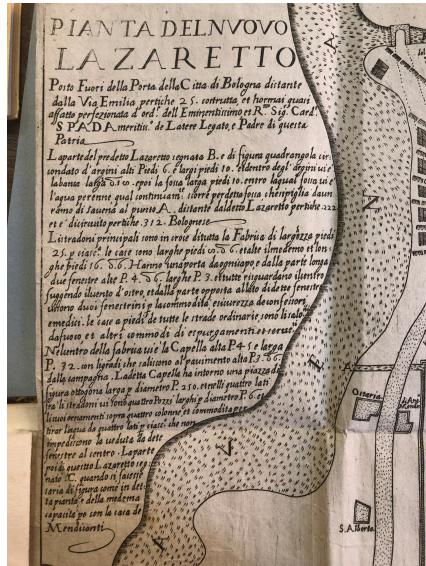 PIANTA DEL NVOVO
LAZARETTO
Posto Fuori della Porta della Citta di Bologna distante
dalla Via Emilia pertiche 25. costrutta, et hormai quasi
affatto perfezionata d'ord. dell Eminentissimo et R. Sig. Card.
SPADA meritiss. de Latere Legato, e Padre di questa
Patria
La parte del predetto Lazaretto segnata B. e di figura quadrangola cir
condato d'argini alti Piedi 6. e largi piedi 10. et dentro degl'argini ui e
la larga 0.10. e poi la fossa larga piedi 10. entro la qual fossa ui e
l'aqua perenne qual continuam. per detta fossa che si piglia da un
ramo di Sauena al punto A. distante dal detto Lazaretto pertiche 222
et e' di circuito pertiche 312. Bolognese
Li stradoni principali sono in croce di tutta la Fabrica di largezza piedi
25. p ciasc. le case sono larghe piedi et alte il medemo et lon
ghe piedi 16. Hanno una porta da ogni capo e dalla parte longa
due fenestre alte P. 4. larghe P. 3. et tutte risguardano il uento
fuggendo il uento d'ostro, et dalla parte opposta allato di dette fenestre
ui sono duoi fenestrini p la commodità e sicurezza de confessori
e medici. le case a piedi de tutte le strade ordinarie, sono li
da fuoco et altri commodi di espurgamenti et
Nel centro della fabrica ui e' la Capella alta P. 45 e larga
P. 32. con li gradi che saliscono al pauimento alta P. 3.
dalla campagna. La detta Capella ha intorno una piazza di
figura ottogona larga p diametro P. 250. et nelli quattro lati
fra li stradoni ui sono quattro Pozzi larghi p diametro P. 6. et
li suoi ornamenti sopra quattro colonne et commodita per
tirar l'aqua da quattro lati p ciasc. che non
impediscono la ueduta da dete
fenestre al centro. La parte
poi di questto Lazaretto seg
nato C. quando si facesse
saria di figura come in det
ta pianta e della medema
capacita po con la casa de
Mendicanti
A
N
E
V
A
A
Ostaria
S. Alberto